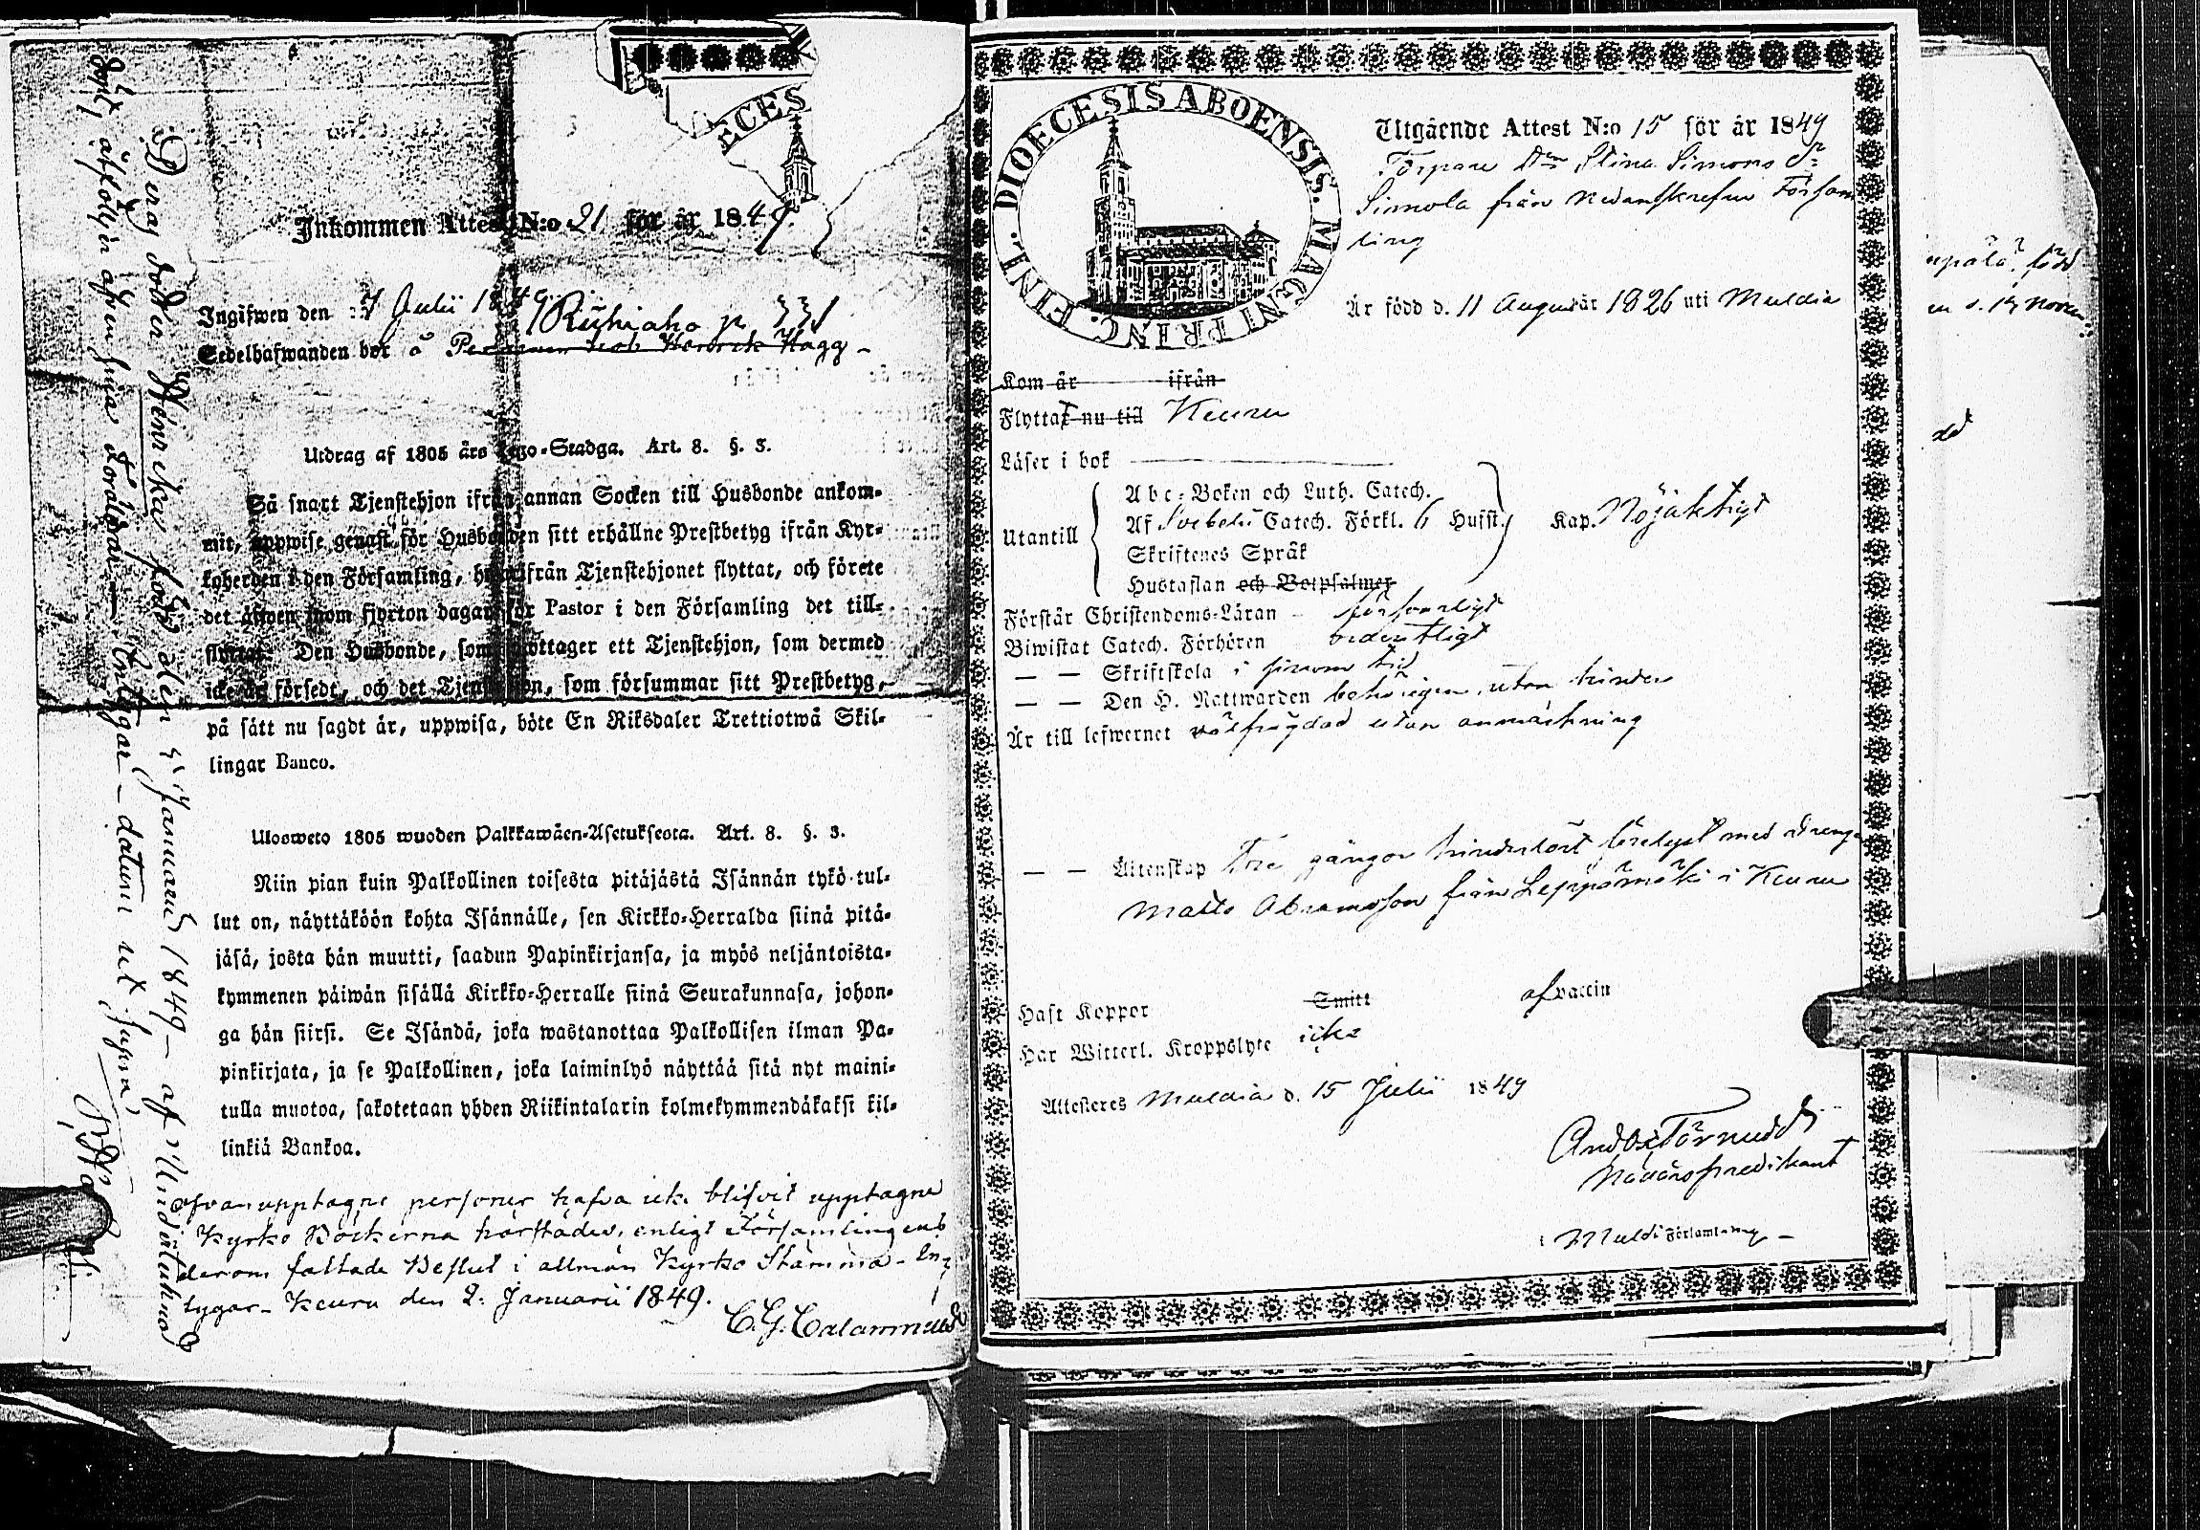 ECES
Inkommen Attest N:o 21 för år 1849.
Ingifwen den 7 Julii 1849
Ruhiaho p. 331
Sedelhafwanden bor å
Utdrag af 1805 års Lego-Stadga. Art. 8. §. 3.
Så snart Tjenstehjon ifrån annan Socken till Husbonde ankom-
mit, uppwise genast för Husbonden sitt erhållne Prestbetyg ifrån Kyr-
koherden i den Församling, hwarifrån Tjenstehjonet flyttat, och förete
det äfwen inom fjorton dagar för Pastor i den Församling det till-
flyttat. Den Husbonde, som mottager ett Tjenstehjon, som dermed
icke är försedt, och det Tjenstehjon, som försummar sitt Prestbetyg,
på sätt nu sagdt är, uppwisa, böte En Riksdaler Trettiotwå Skil-
lingar Banco.
Ulosweto 1805 wuoden Palkkawäen-Asetuksesta. Art. 8. §. 3.
Niin pian kuin Palkollinen toisesta pitäjästä Isännän tykö tul-
lut on, näyttäköön kohta Isännälle, sen Kirkko-Herralda siinä pitä-
jäsä, josta hän muutti, saadun Papinkirjansa, ja myös neljäntoista-
kymmenen päiwän sisällä Kirkko-Herralle siinä Seurakunnasa, johon-
ga hän siirsi. Se Isändä, joka wastanottaa Palkollisen ilman Pa-
pinkirjata, ja se Palkollinen, joka laiminlyö näyttää sitä nyt maini-
tulla muotoa, sakotetaan yhden Riikintalarin kolmekymmendäkaksi kil-
linkiä Bankoa.
Ofvanupptagne personer hafva icke blifvit upptagne
Kyrko Böckerna härstädes, enligt Församlingens
derom fattade Beslut i allmän Kyrko Stämma - In-
tygar - Keuru den 2. Januarii 1849.
C. G. Calamnius
Henrika född den 5 Januarii 1849 - af
åtföljer äfven sina Föräldrar - Intygar - datum ut supra,
DIOECESIS ABOENSIS. MAGNI PRINC. FINL.
Utgående Attest N:o 15 för år 1849
Torpare Dr Stina Simons Dr
Simola från nedanskrefne Försam
ling
Är född d. 11 August år 1826 uti Muldia
Kom år ifrån
Flyttat nu till Keuru
Läser i bok
Utantill
Abc-Boken och Luth. Catech.
Af Svebelii Catech. Förkl. 6 Hufst.
Kap. Nöjaktigt
Skriftenes Språk
Hustaflan och Botpsalmer
Förstår Christendoms-Läran - försvarligt
Biwistat Catech. Förhören ordentligt
— — Skriftskola i sinom tid
— — Den H. Nattwarden behörigen, utan hinder
Är till lefwernet välfrägdad utan anmärkning
— — Äktenskap tre gångor hinderlöst förelyst med drengen
Matts Abramsson från Leppämäki i Keuru
Haft Koppor Smitt af vaccin
Har Witterl. Kroppslyte icke
Attesteras Muldia d. 15 Julii 1849
And. Törnudd
Nådårspredikant
i Muldi Församling -
född
dd